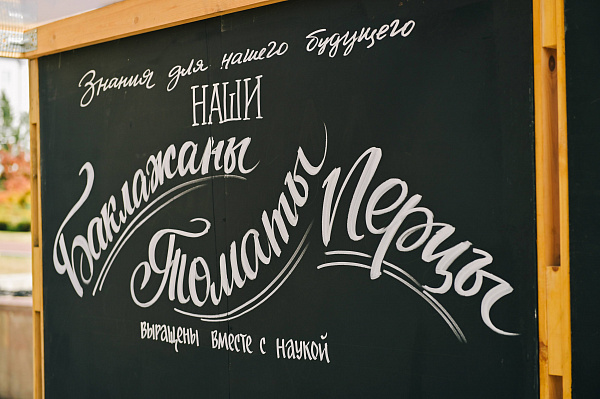 Знания для нашего будущего
НАШИ
Баклажаны
Томаты
Перцы
выращены вместе с наукой